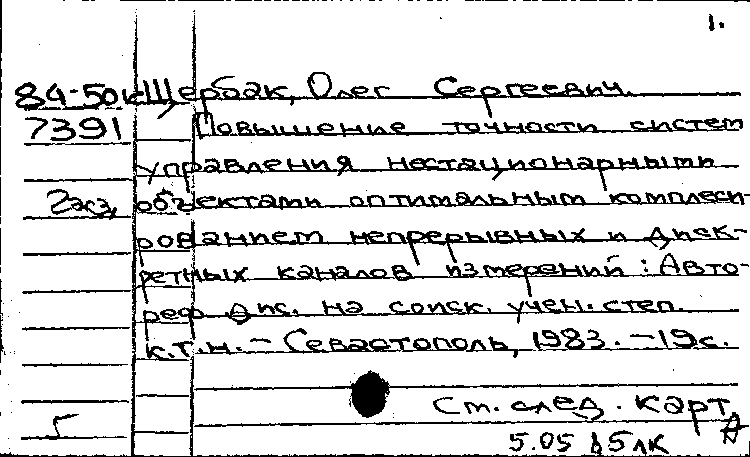 1.
84-50к Щербак, Олег Сергеевич.
7391 Повышение точности систем
управления нестационарными
2 экз. объектами оптимальным комплекси-
рованием непрерывных и диск-
ретных каналов измерений: Авто-
реф. дис. на соиск. учен. степ.
к.т.н. - Севастополь, 1983. - 19с.
См. след. карт.
5 5.05